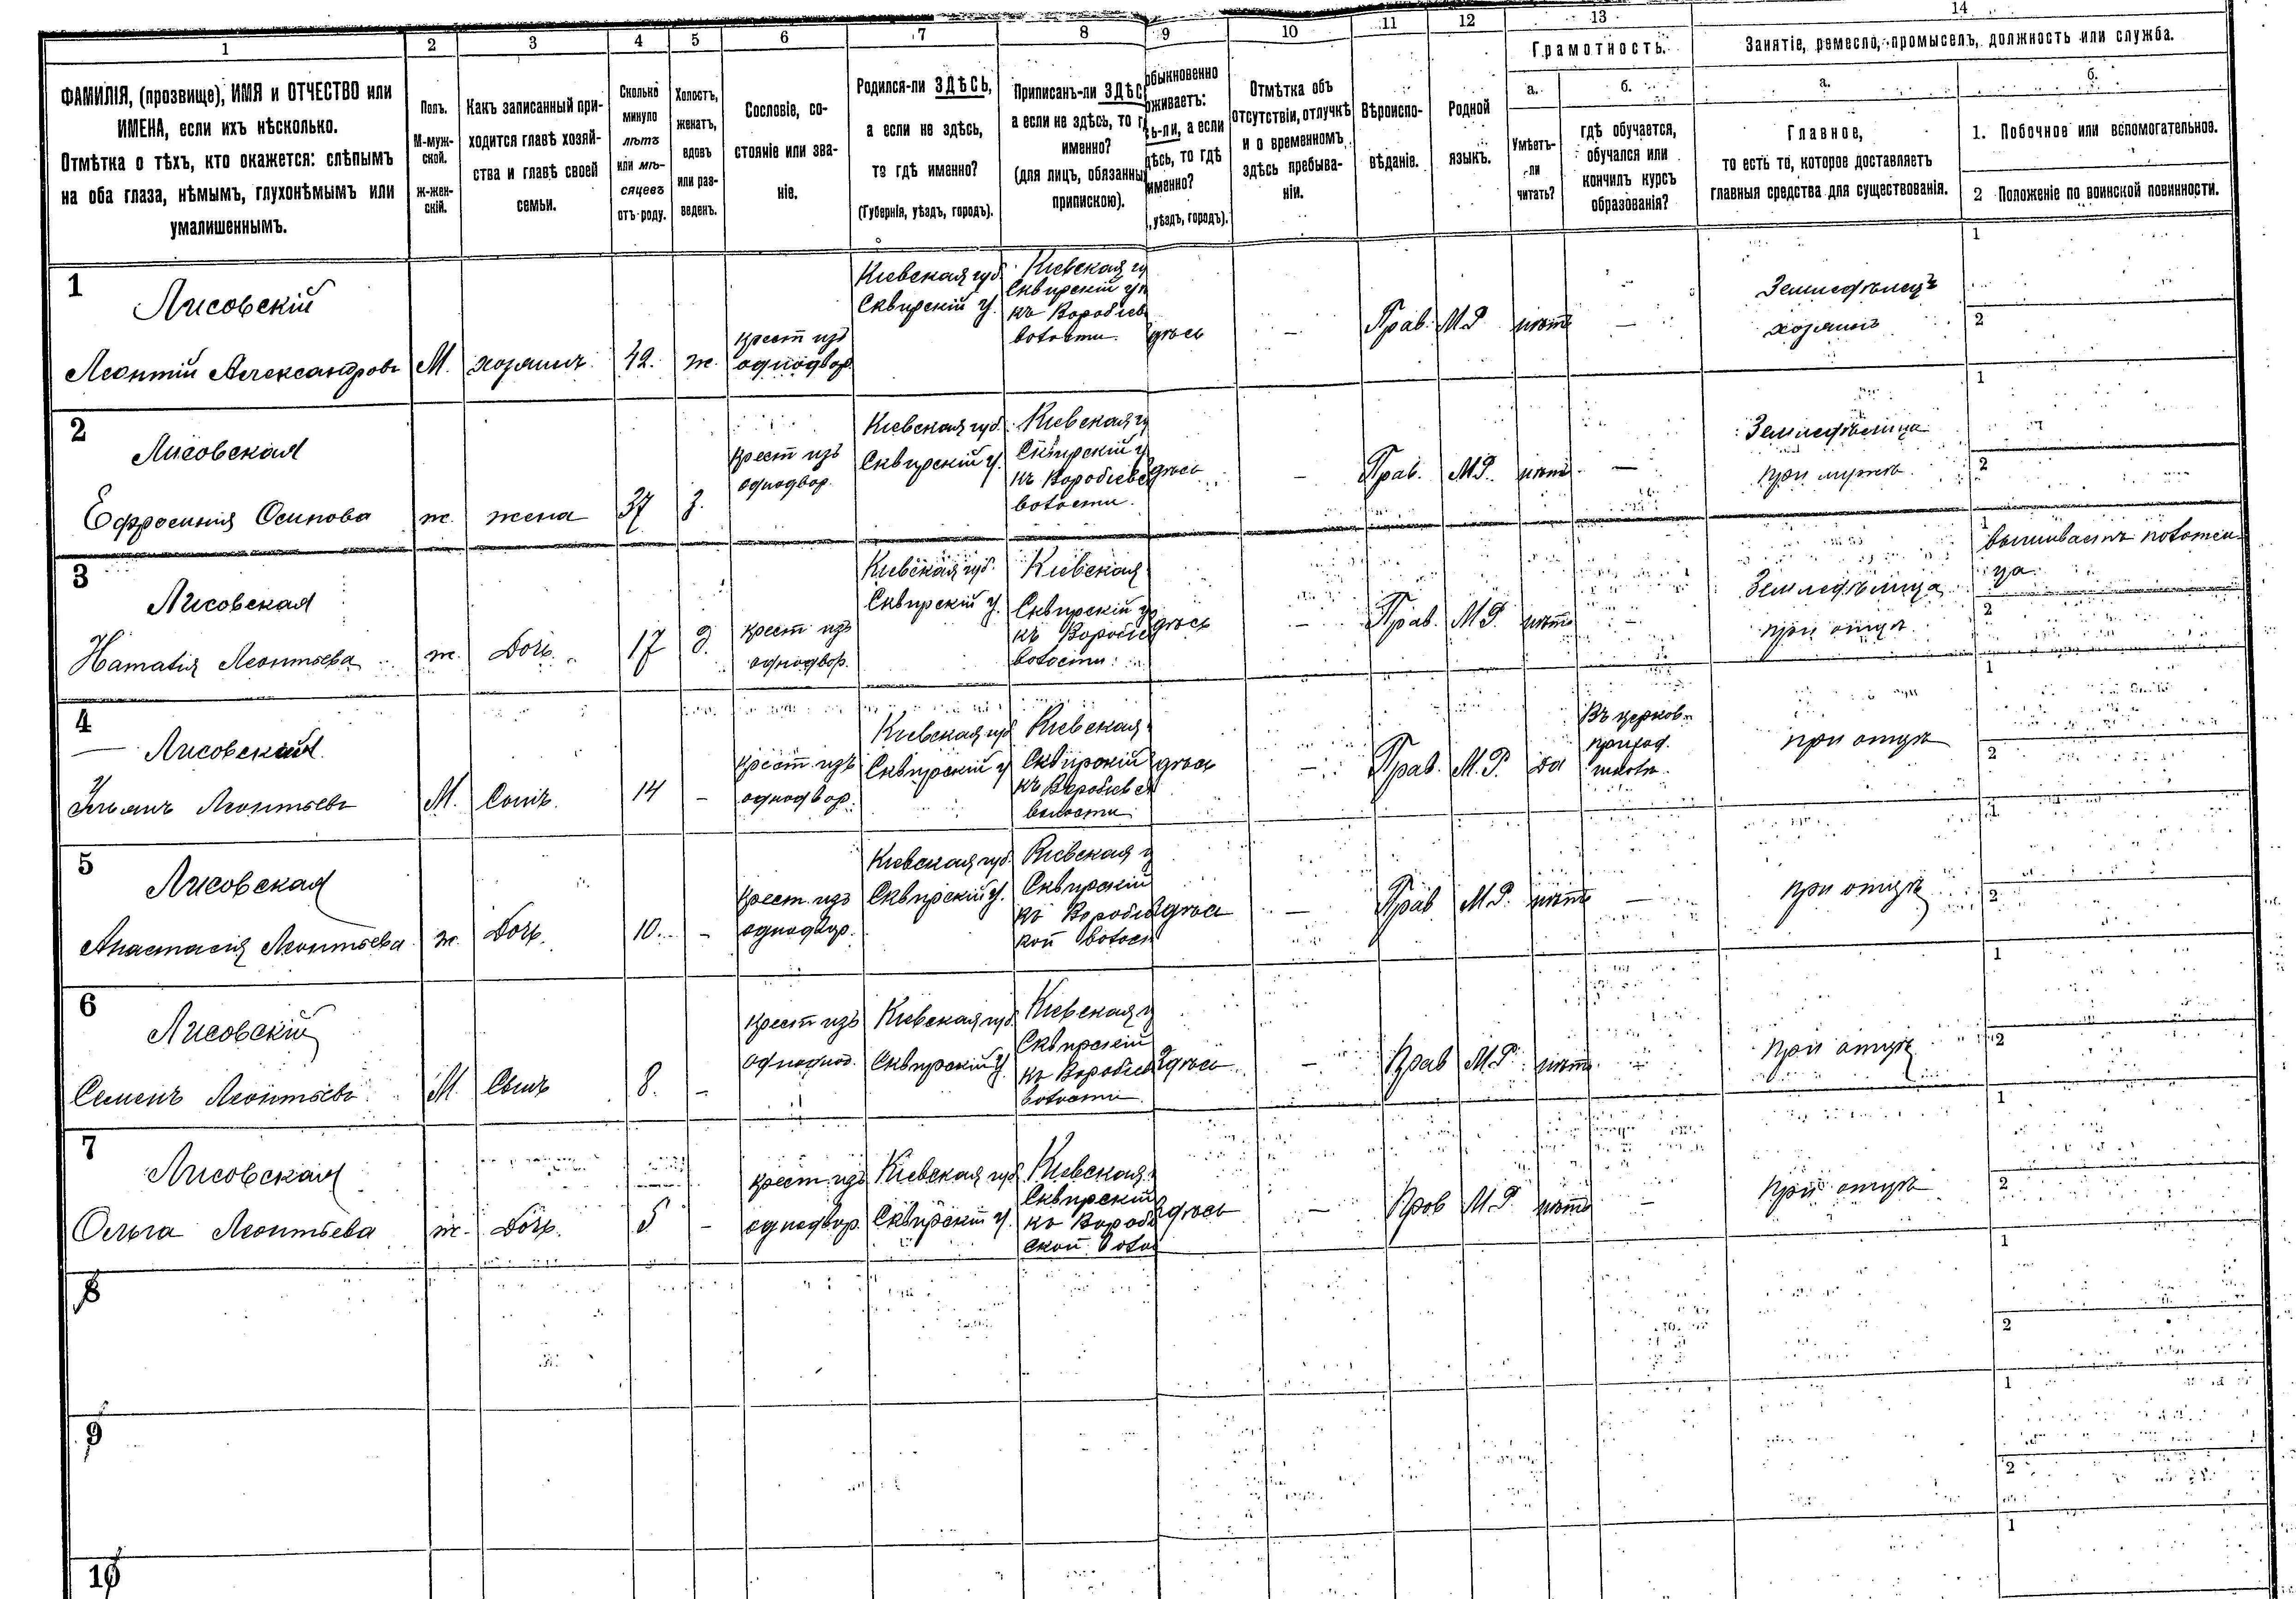 1 2 3 4 5 6 7 8 9 10 11 12 13 14
ФАМИЛІЯ, (прозвище), ИМЯ и ОТЧЕСТВО или
ИМЕНА, если ихъ нѣсколько.
Отмѣтка о тѣхъ, кто окажется: слѣпымъ
на оба глаза, нѣмымъ, глухонѣмымъ или
умалишеннымъ.
Полъ.
М-муж-
ской.
Ж-жен-
скій.
Какъ записанный при-
ходится главѣ хозяй-
ства и главѣ своей
семьи.
Сколько
минуло
лѣтъ
или мѣ-
сяцевъ
отъ-роду.
Холостъ,
женатъ,
вдовъ
или раз-
веденъ.
Сословіе, со-
стояніе или зва-
ніе.
Родился-ли ЗДѢСЬ,
а если не здѣсь,
то гдѣ именно?
(Губернія, уѣздъ, городъ).
Приписанъ-ли ЗДѢС
а если не здѣсь, то г
именно?
(для лицъ, обязанны
припискою).
обыкновенно
оживаетъ:
ь-ли, а если
дѣсь, то гдѣ
именно?
, уѣздъ, городъ).
Отмѣтка объ
отсутствіи, отлучкѣ
и о временномъ
здѣсь пребыва-
ніи.
Вѣроиспо-
вѣданіе.
Родной
языкъ.
Грамотность.
а.
Умѣетъ-
ли
читать?
б.
гдѣ обучается,
обучался или
кончилъ курсъ
образованія?
Занятіе, ремесло, промыселъ, должность или служба.
а.
Главное,
то есть то, которое доставляетъ
главныя средства для существованія.
б.
1. Побочное или вспомогательное.
2 Положеніе по воинской повинности.
1
Лисовскій
Леонтій Александровъ
М.
хозяинъ
42.
ж.
крест изъ
однодвор.
Кіевская губ.
Сквирскій у.
Кіевская гу
Сквирскій у
къ Воробіев
волости.
здѣсь
—
Прав.
М.Р.
нѣтъ
—
Земледѣлецъ
хозяинъ
1
2
2
Лисовская
Ефросинія Осипова
ж.
жена
37
З.
крест изъ
однодвор.
Кіевская губ.
Сквирскій у.
Кіевская гу
Сквирскій у
къ Воробіевс
волости.
здѣсь
—
Прав.
М.Р.
нѣтъ
—
Земледѣлица
при мужѣ.
1
2
3
Лисовская
Наталія Леонтьева
ж.
Дочь.
17
д.
крест изъ
однодвор.
Кіевская губ.
Сквирскій у.
Кіевская
Сквирскій у
къ Воробіе
волости.
здѣсь
—
Прав.
М.Р.
нѣтъ
—
Земледѣлица
при отцѣ.
1
вышиваетъ полотен
ца
2
4
Лисовский
Ульянъ Леонтьевъ
М.
Сынъ.
14
-
крест. изъ
однодвор.
Кіевская губ
Сквирскій у
Кіевская
Сквирскій
къ Воробіевск
волости
здѣсь
—
Прав.
М.Р.
да
Въ церков-
приход.
школѣ.
при отцѣ
1
2
5
Лисовская
Анастасія Леонтьева
ж.
Дочь.
10.
-
крест. изъ
однодвор.
Кіевская губ.
Сквирскій у.
Кіевская г
Сквирскій
къ Воробіев
кой волост
здѣсь
—
Прав
М.Р.
нѣтъ
—
при отцѣ
1
2
6
Лисовскій
Семенъ Леонтьевъ
М.
Сынъ
8.
-
крест изъ
Кіевская губ.
Сквирскій у.
Кіевская г
Сквирскій
къ Воробіев
волости
здѣсь
—
Прав
М.Р.
нѣтъ
—
при отцѣ
1
2
7
Лисовская
Ольга Леонтьева
ж.
Дочь.
5
-
крест. изъ
однодвор.
Кіевская губ
Сквирскій у.
Кіевская
Сквирскій
къ Вороб
ской воло
здѣсь
—
Прав
М.Р.
нѣтъ
—
при отцѣ
1
2
8
1
2
9
1
2
10
1